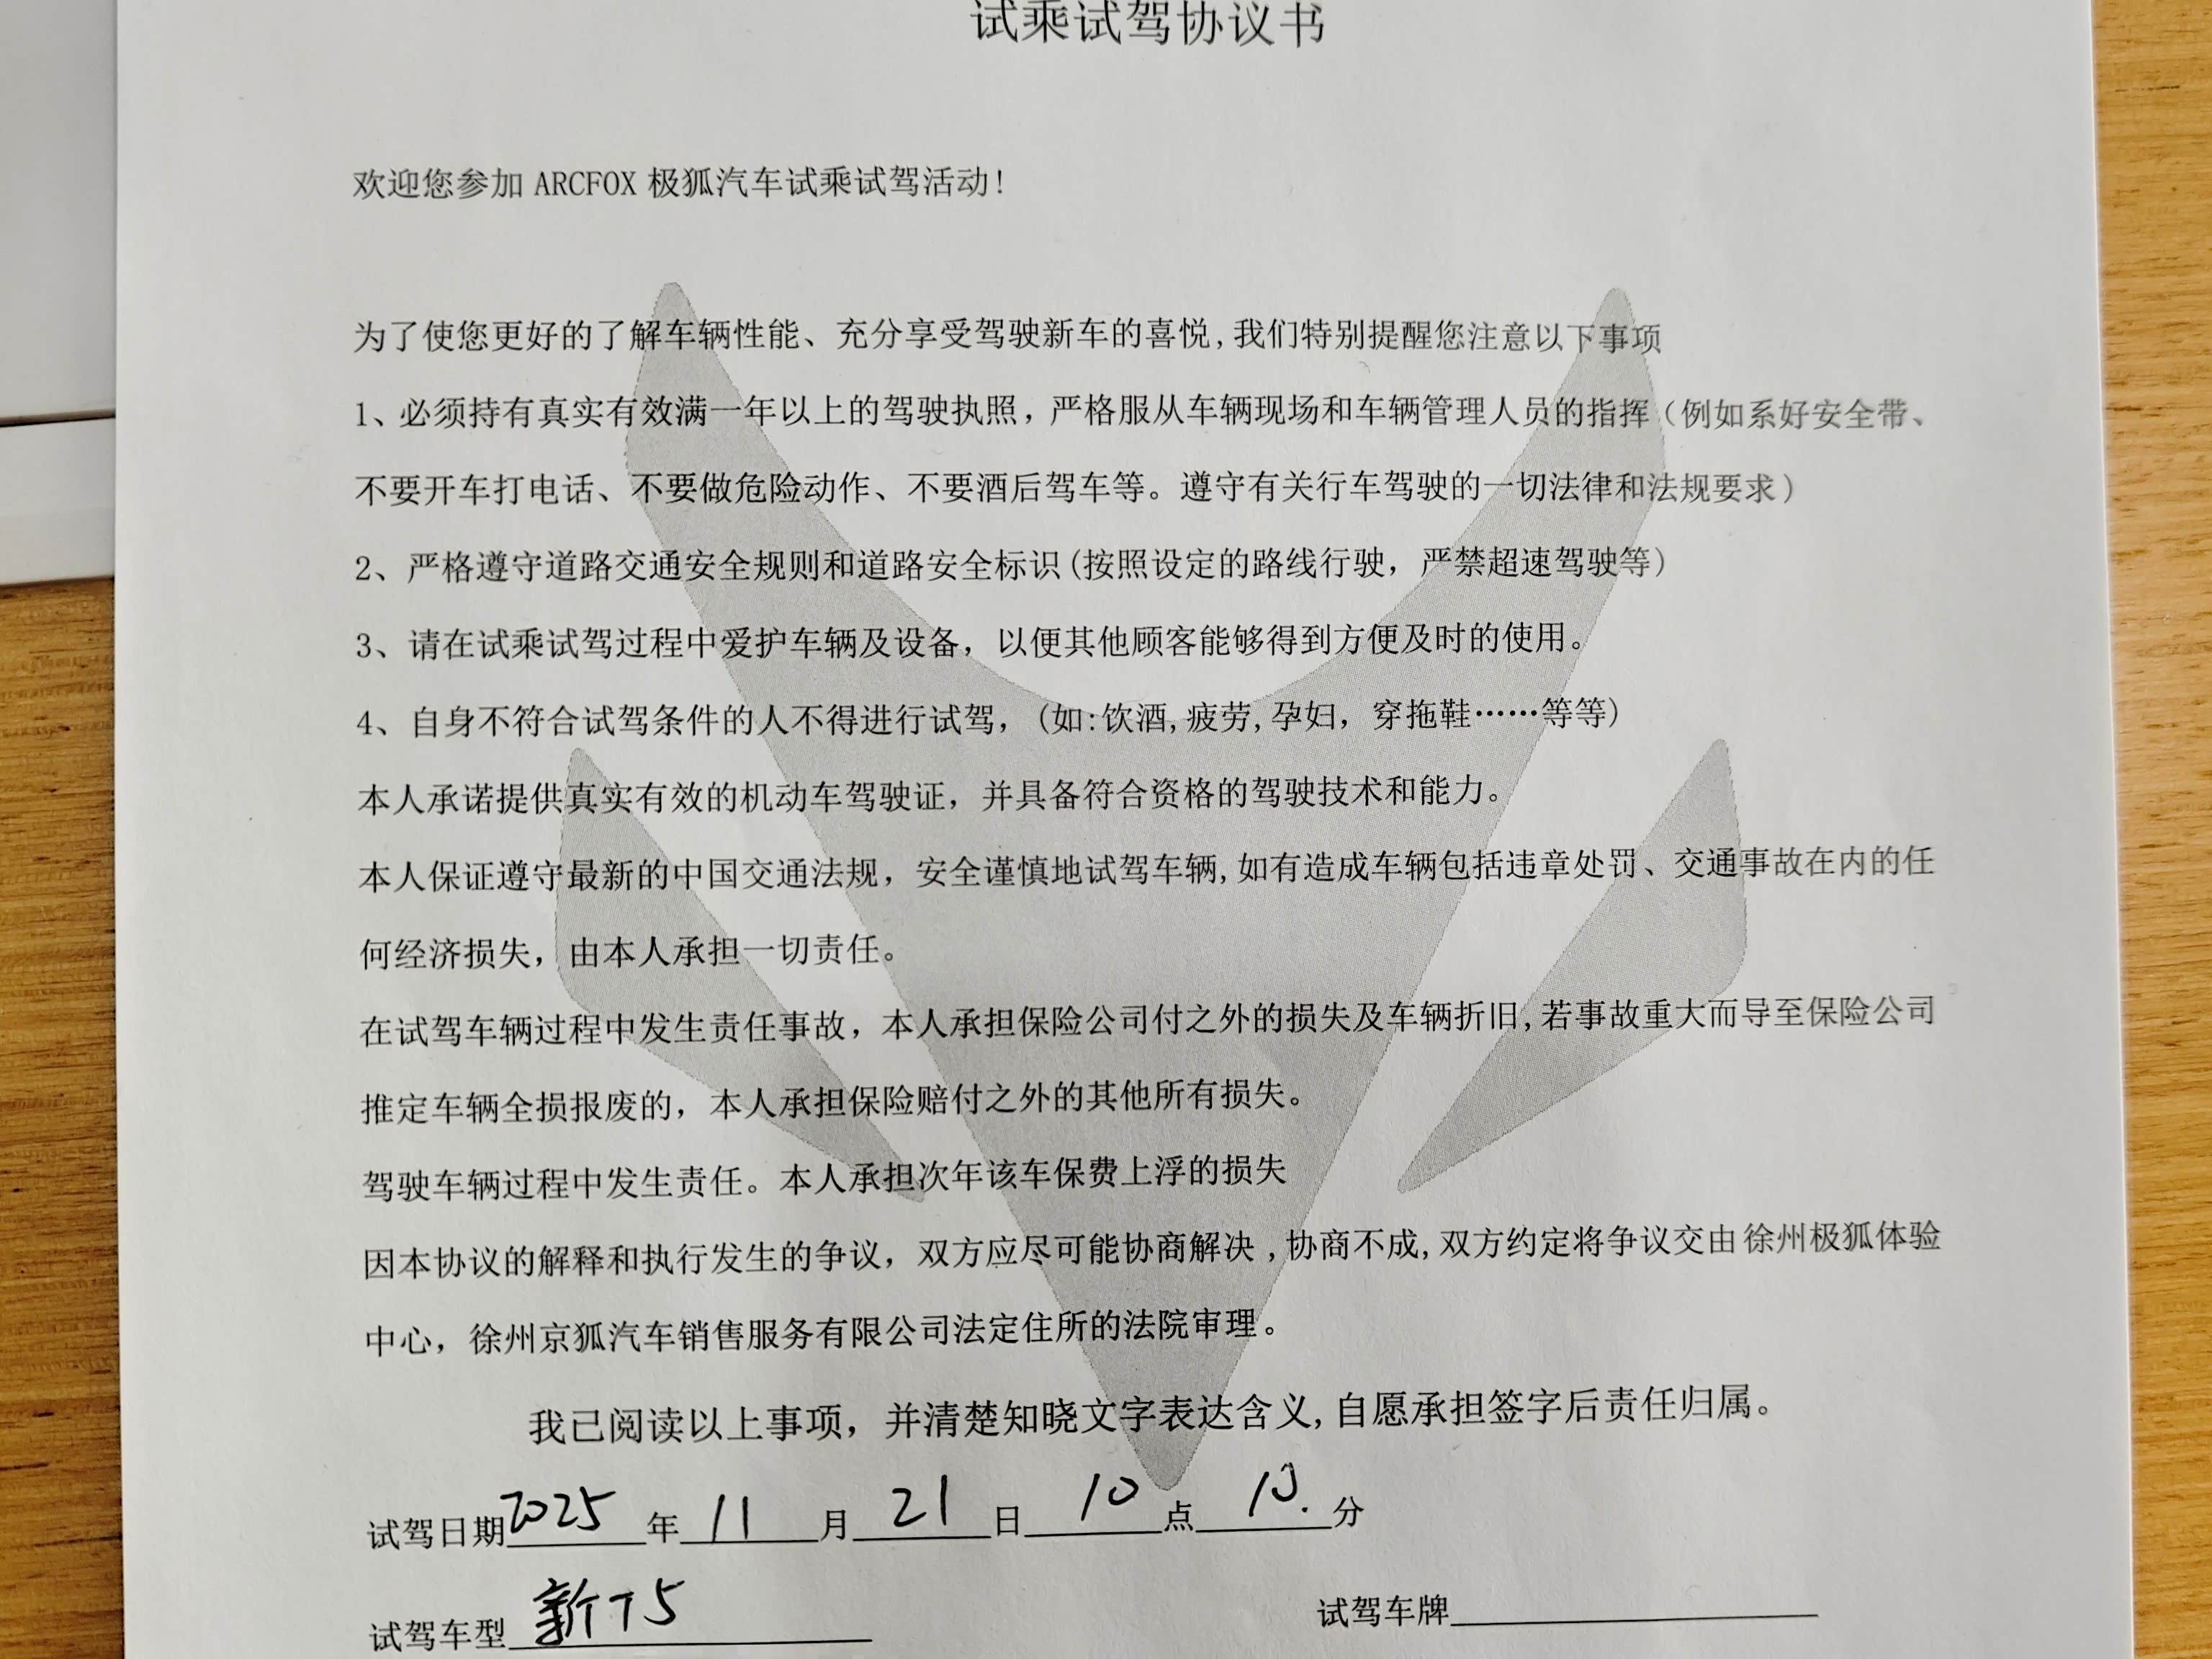 试乘试驾协议书
欢迎您参加 ARCFOX 极狐汽车试乘试驾活动!
为了使您更好的了解车辆性能、充分享受驾驶新车的喜悦,我们特别提醒您注意以下事项
1、必须持有真实有效满一年以上的驾驶执照，严格服从车辆现场和车辆管理人员的指挥（例如系好安全带、
不要开车打电话、不要做危险动作、不要酒后驾车等。遵守有关行车驾驶的一切法律和法规要求)
2、严格遵守道路交通安全规则和道路安全标识(按照设定的路线行驶，严禁超速驾驶等)
3、请在试乘试驾过程中爱护车辆及设备，以便其他顾客能够得到方便及时的使用。
4、自身不符合试驾条件的人不得进行试驾，(如:饮酒,疲劳,孕妇，穿拖鞋……等等)
本人承诺提供真实有效的机动车驾驶证，并具备符合资格的驾驶技术和能力。
本人保证遵守最新的中国交通法规，安全谨慎地试驾车辆,如有造成车辆包括违章处罚、交通事故在内的任
何经济损失，由本人承担一切责任。
在试驾车辆过程中发生责任事故，本人承担保险公司付之外的损失及车辆折旧,若事故重大而导至保险公司
推定车辆全损报废的，本人承担保险赔付之外的其他所有损失。
驾驶车辆过程中发生责任。本人承担次年该车保费上浮的损失
因本协议的解释和执行发生的争议，双方应尽可能协商解决,协商不成,双方约定将争议交由徐州极狐体验
中心，徐州京狐汽车销售服务有限公司法定住所的法院审理。
我已阅读以上事项，并清楚知晓文字表达含义,自愿承担签字后责任归属。
试驾日期2025年11月21日10点10.分
试驾车型新T5 试驾车牌